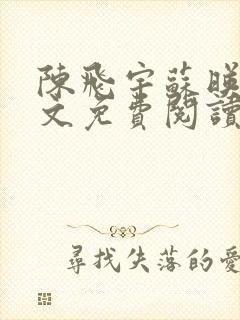 陳飛宇蘇映
文免費閱讀
尋找失落的愛